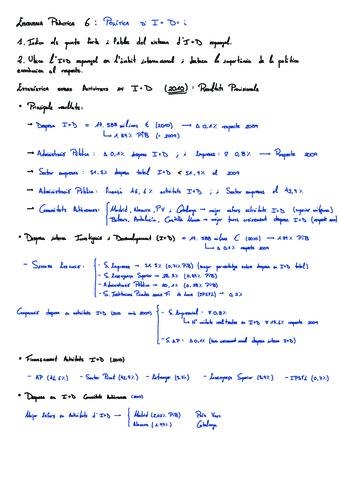 Pràctica 6: Política d'I+D+i
1. Indica els punts forts i febles del sistema d'I+D espanyol.
2. Ubica l'I+D espanyol en l'àmbit internacional i destaca la importància de la política
econòmica al respecte.
Estadística sobre Activitats en I+D (2010): Resultats Provisionals
• Principals resultats:
→ Despesa I+D = 14.588 milions € (2010) → Δ 0,1% respecte 2009
↳ 1,39% PIB (= 2009)
→ Administració Pública: Δ 0,1% despesa I+D; i Empreses: ∇ 0,8% → Respecte 2009
→ Sector empreses: 51,5% despesa total I+D < 51,9% el 2009
→ Administració Pública: finançà 46,6% activitats I+D; i Sector empreses el 42,9%
→ Comunitats Autònomes: Madrid, Navarra, PV i Catalunya → major esforç activitats I+D
Balears, Andalucía, Castilla → major creixement despesa I+D
• Despesa interna Investigació i Desenvolupament (I+D) = 14.588 milions € (2010) → 1,39% PIB
↳ Δ 0,1% respecte 2009
- S. Empreses → 51,5% (0,71% PIB) (major percentatge sobre despesa en I+D total)
- S. Ensenyança Superior → 28,3% (0,39% PIB)
- Administració Pública → 20,1% (0,28% PIB)
- S. Institucions Privades sense Fi de Lucre (IPSFL) → 0,2%
Comparació despesa en activitats I+D (2010 amb 2009)
- S. Empresarial: ∇ 0,8%
- S. AP: Δ
• Finançament Activitats I+D (2010)
- AP (46,6%) - Sector Privat (42,9%) - Estranger (5,7%) - Ensenyança Superior (3,9%) - IPSFL (0,7%)
• Despesa en I+D Comunitats Autònomes (2010)
Major Esforç en Activitats d'I+D → Madrid (2,02% PIB) País Vasc
Navarra (1,97%) Catalunya